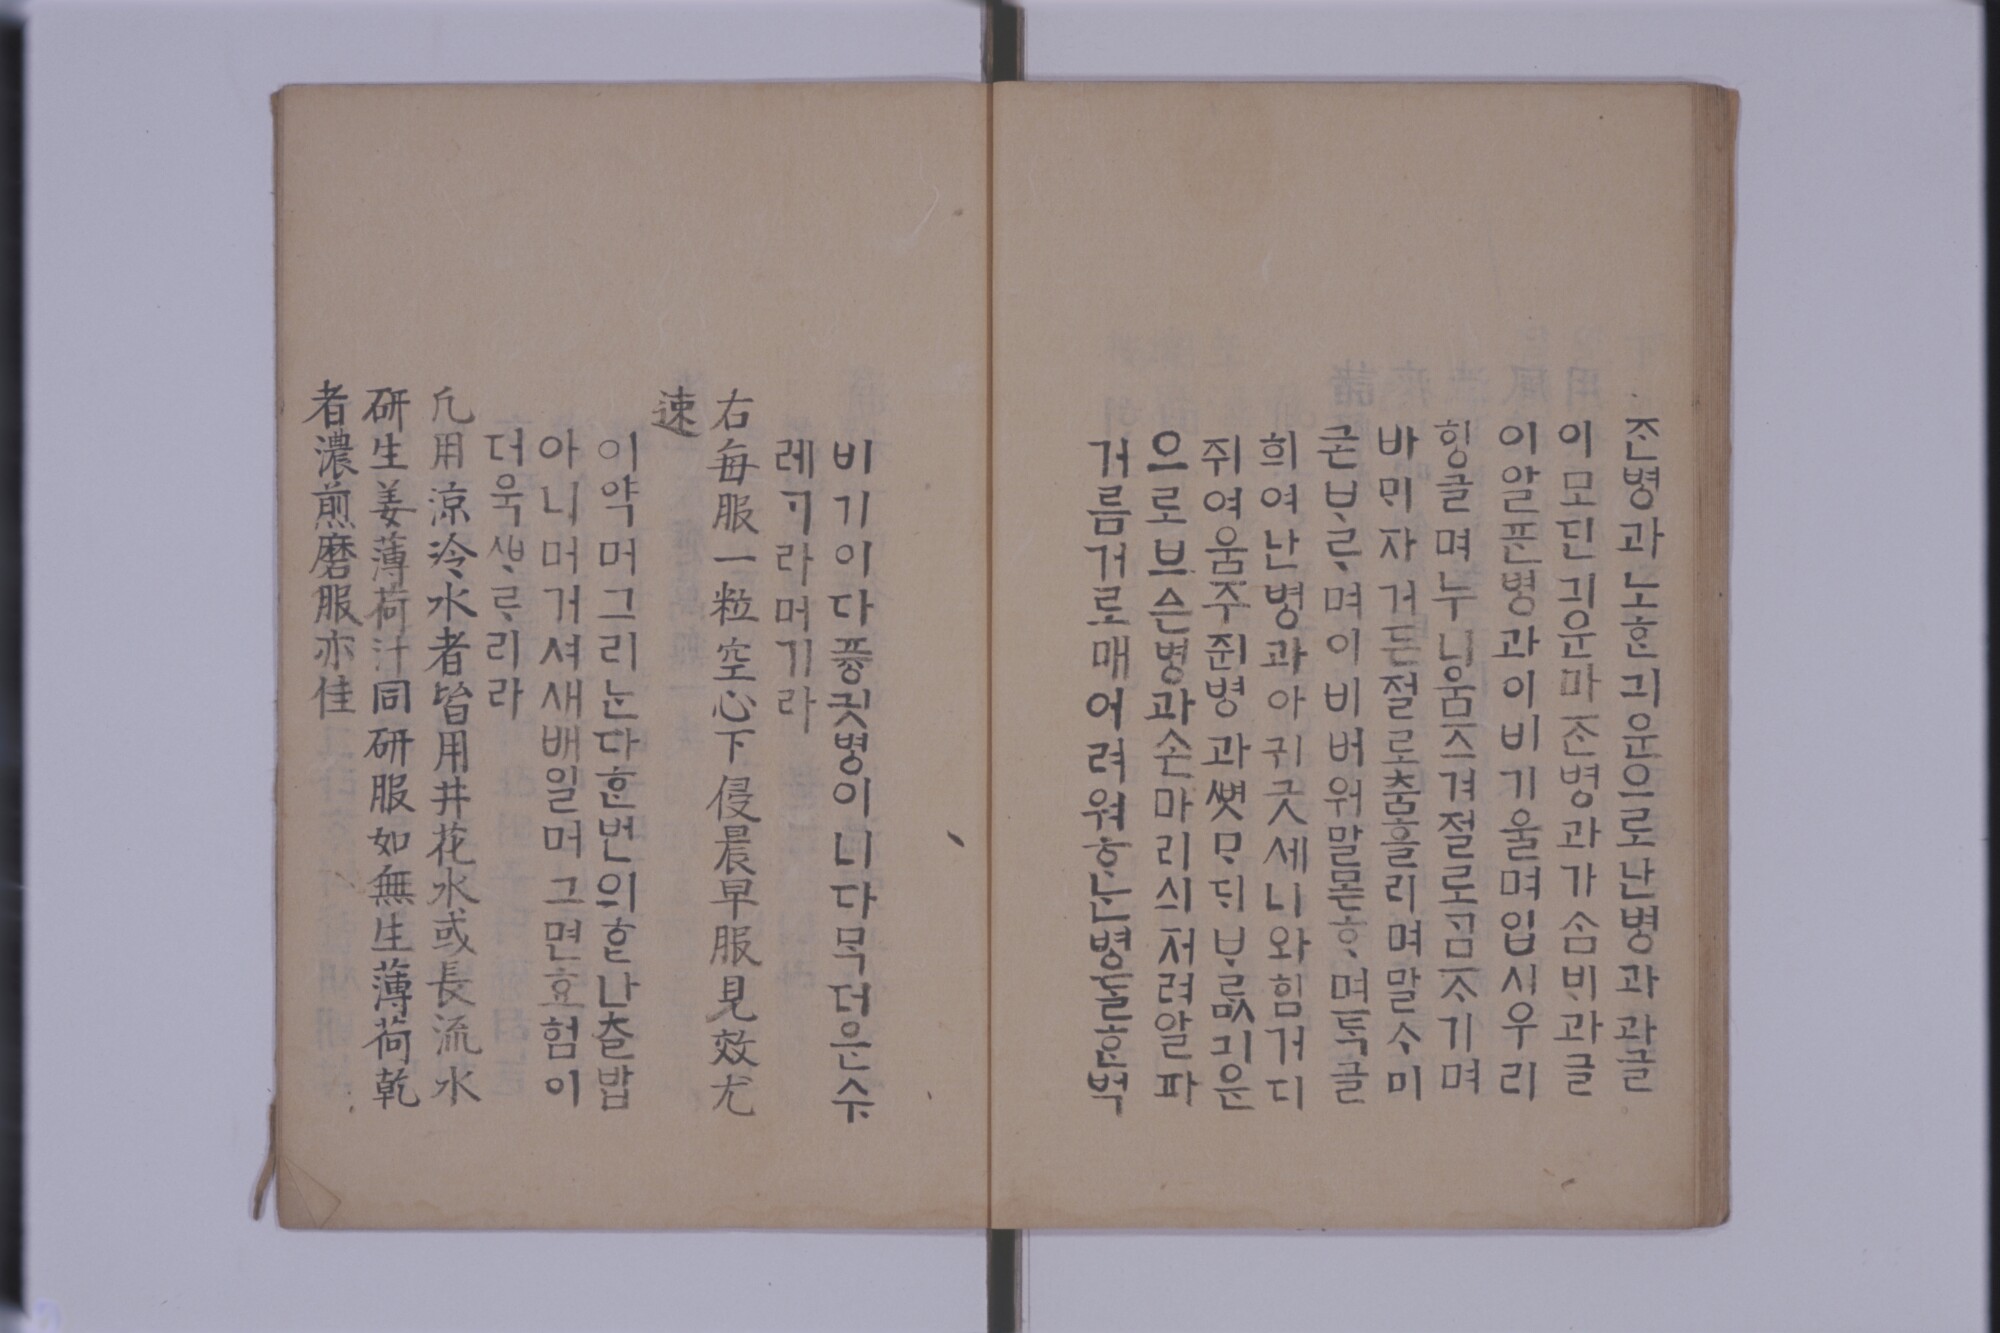 ᄌᆞᆫ병과노ᄒᆞᆫ긔운으로난병과과글
이모딘긔운마ᄌᆞᆫ병과가ᄉᆞᆷ비과글
이알ᄑᆞᆫ병과이비기울며입시우리
힝글며누니움즈겨절로ᄀᆞᆷᄌᆞ기며
바ᄆᆡ자거든절로춤흘리며말ᄉᆞ미
굳ᄇᆞᄅᆞ며이비버워말몯ᄒᆞ며ᄐᆞᆨ글
희여난병과아귀굿세니와힘거디
쥐여움주쥔병과ᄲᅧᆺᄆᆞᄃᆡᄇᆞᄅᆞᇝ긔운
으로브슨병과손마리싀저려알파
거름거로매어려워ᄒᆞᄂᆞᆫ병ᄃᆞᆯᄒᆞᆫ벽
비기이다풍긧병이니다ᄆᆞᆨ더운수
레ᄀᆞ라머기라
右每服一粒空心下侵晨早服見效尤
速
이약머그리ᄂᆞᆫ다ᄒᆞᆫ번의ᄒᆞᆫ낫출밥
아니머거셔새배일며그면효험이
더욱ᄲᆞᄅᆞ리라
凡用涼冷水者皆用井花水或長流水
硏生姜薄荷汁同硏服如無生薄荷乾
者濃煎磨服亦佳